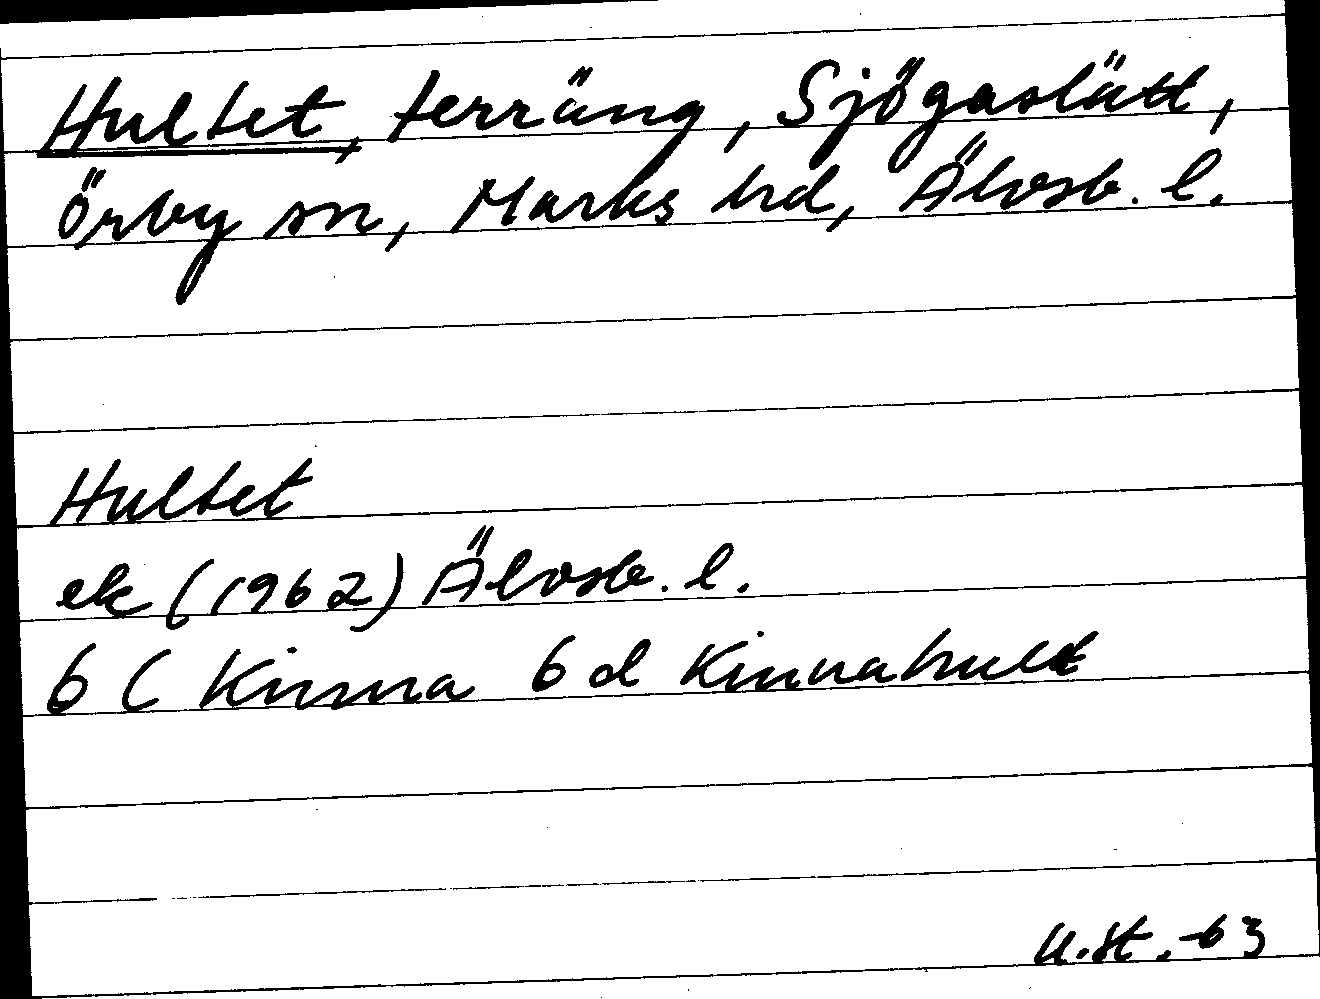 Hultet, terräng, Sjögaslätt,
Örby sn, Marks hd, Älvsb. l.
Hultet
ek (1962) Älvsb. l.
6 C Kinna 6 d Kinnahult
U.St. -63